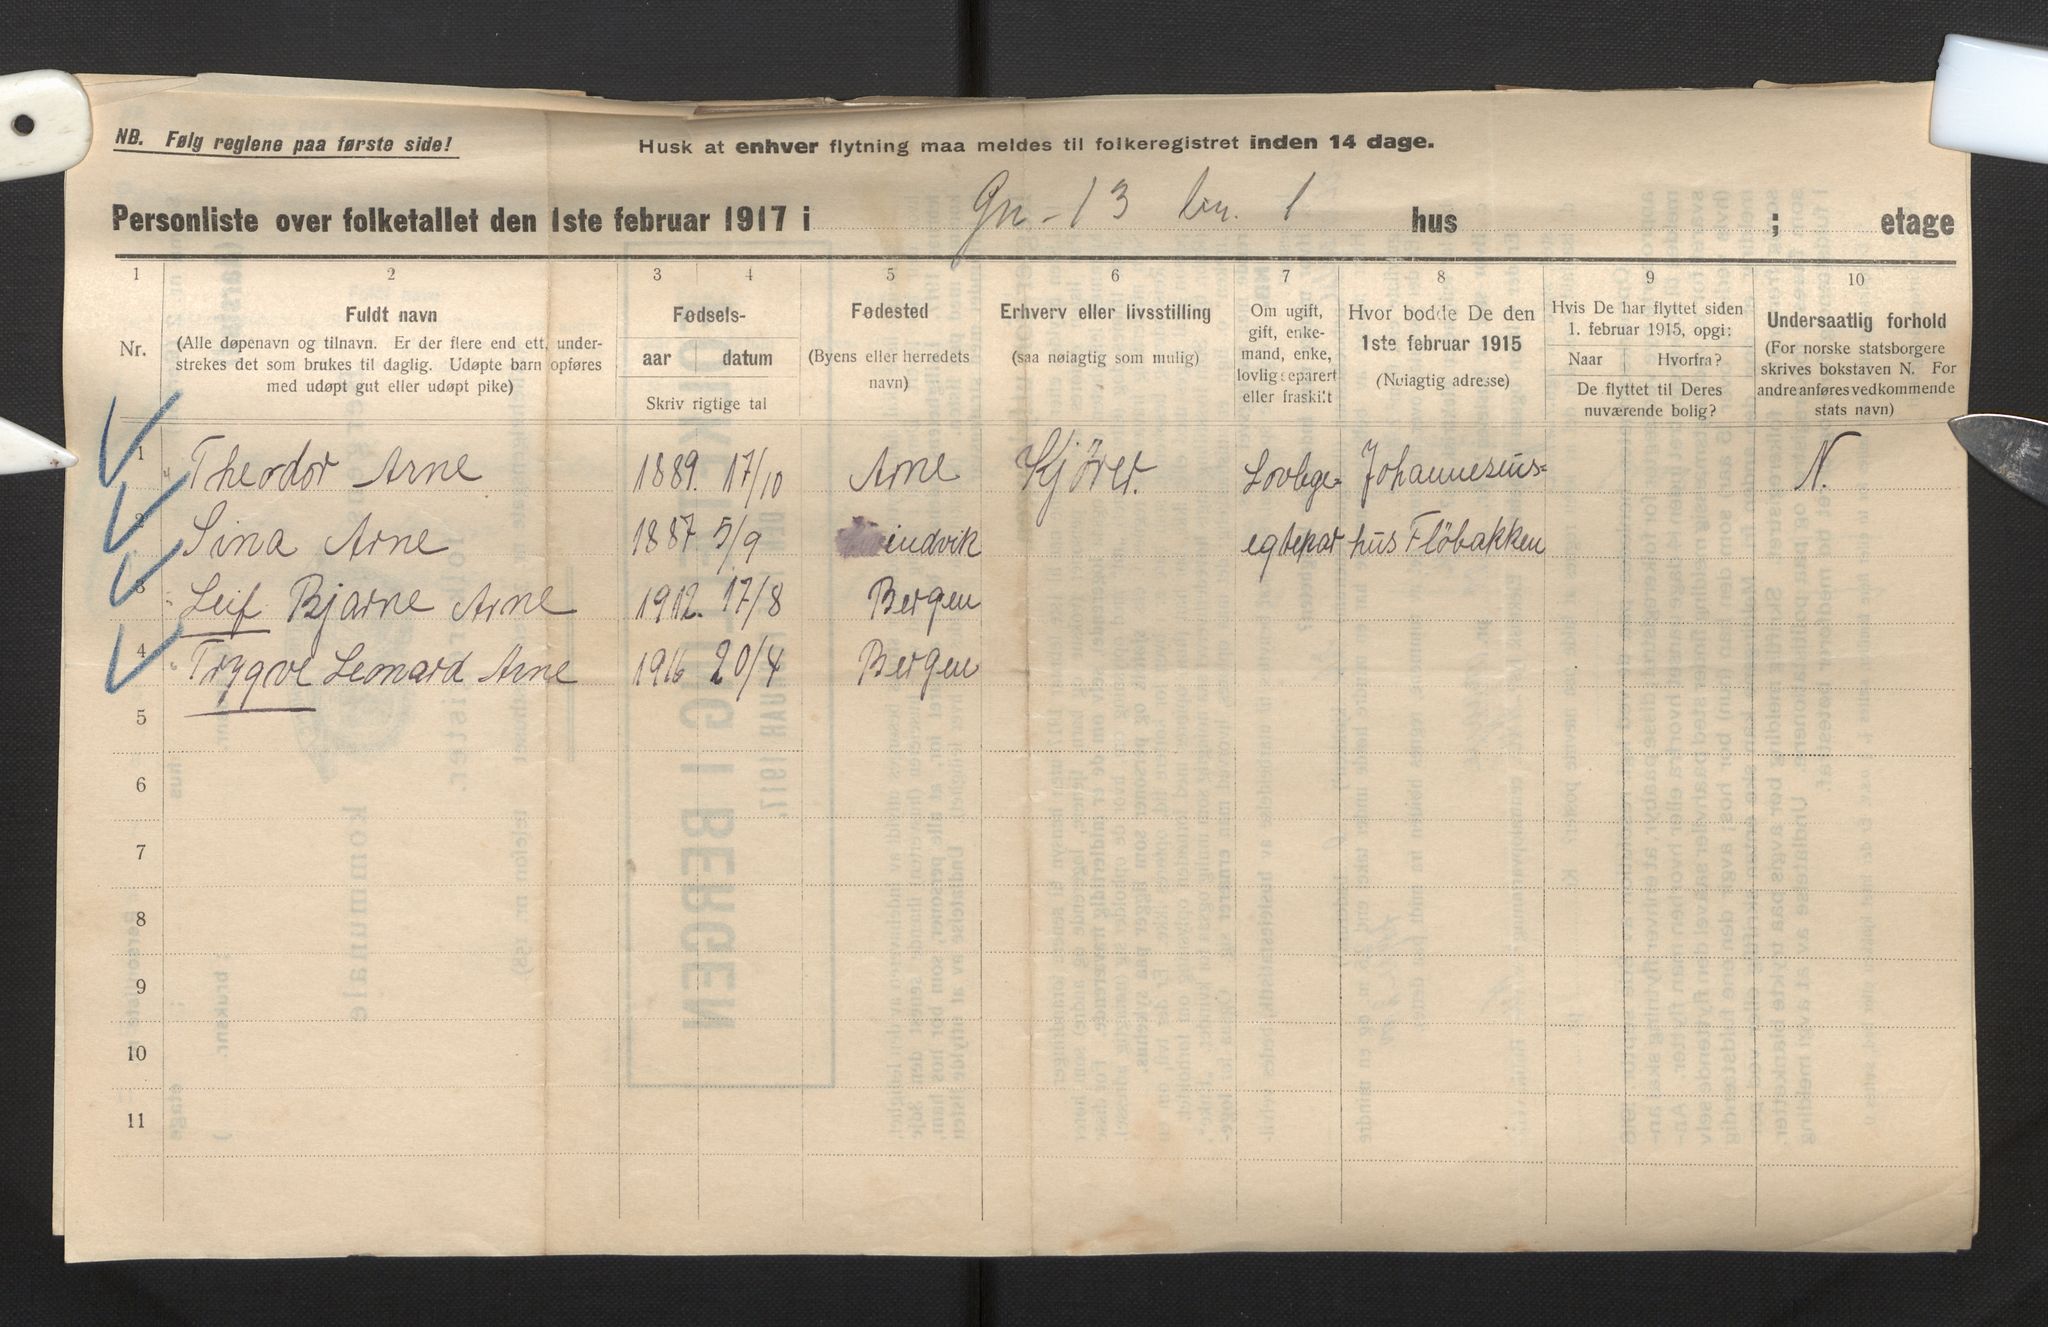 NB. Følg reglene paa første side!
Husk at enhver flytning maa meldes til folkeregistret inden 14 dage.
Personliste over folketallet den 1ste februar 1917 i Gn-13 bn. 1 hus ; etage
1 2 3 4 5 6 7 8 9 10
Nr.
Fuldt navn
(Alle døpenavn og tilnavn. Er der flere end ett, under-
strekes det som brukes til daglig. Udøpte barn opføres
med udøpt gut eller udøpt pike)
Fødsels-
aar datum
Skriv rigtige tal
Fødested
(Byens eller herredets
navn)
Erhverv eller livsstilling
(saa nøiagtig som mulig)
Om ugift,
gift, enke-
mand, enke,
lovlig separert
eller fraskilt
Hvor bodde De den
1ste februar 1915
(Nøiagtig adresse)
Hvis De har flyttet siden
1. februar 1915, opgi:
Naar Hvorfra?
De flyttet til Deres
nuværende bolig?
Undersaatlig forhold
(For norske statsborgere
skrives bokstaven N. For
andre anføres vedkommende
stats navn)
1 Theodor Arne 1889. 17/10 Arne Kjörer. Lovlege- Johannesius= N.
2 Sina Arne 1887. 5/9 egtepar hus Flöbakken
3 Leif Bjarne Arne 1912. 17/8 Bergen
4 Trygve Leonard Arne 1916 20/4 Bergen
5
6
7
8
9
10
11